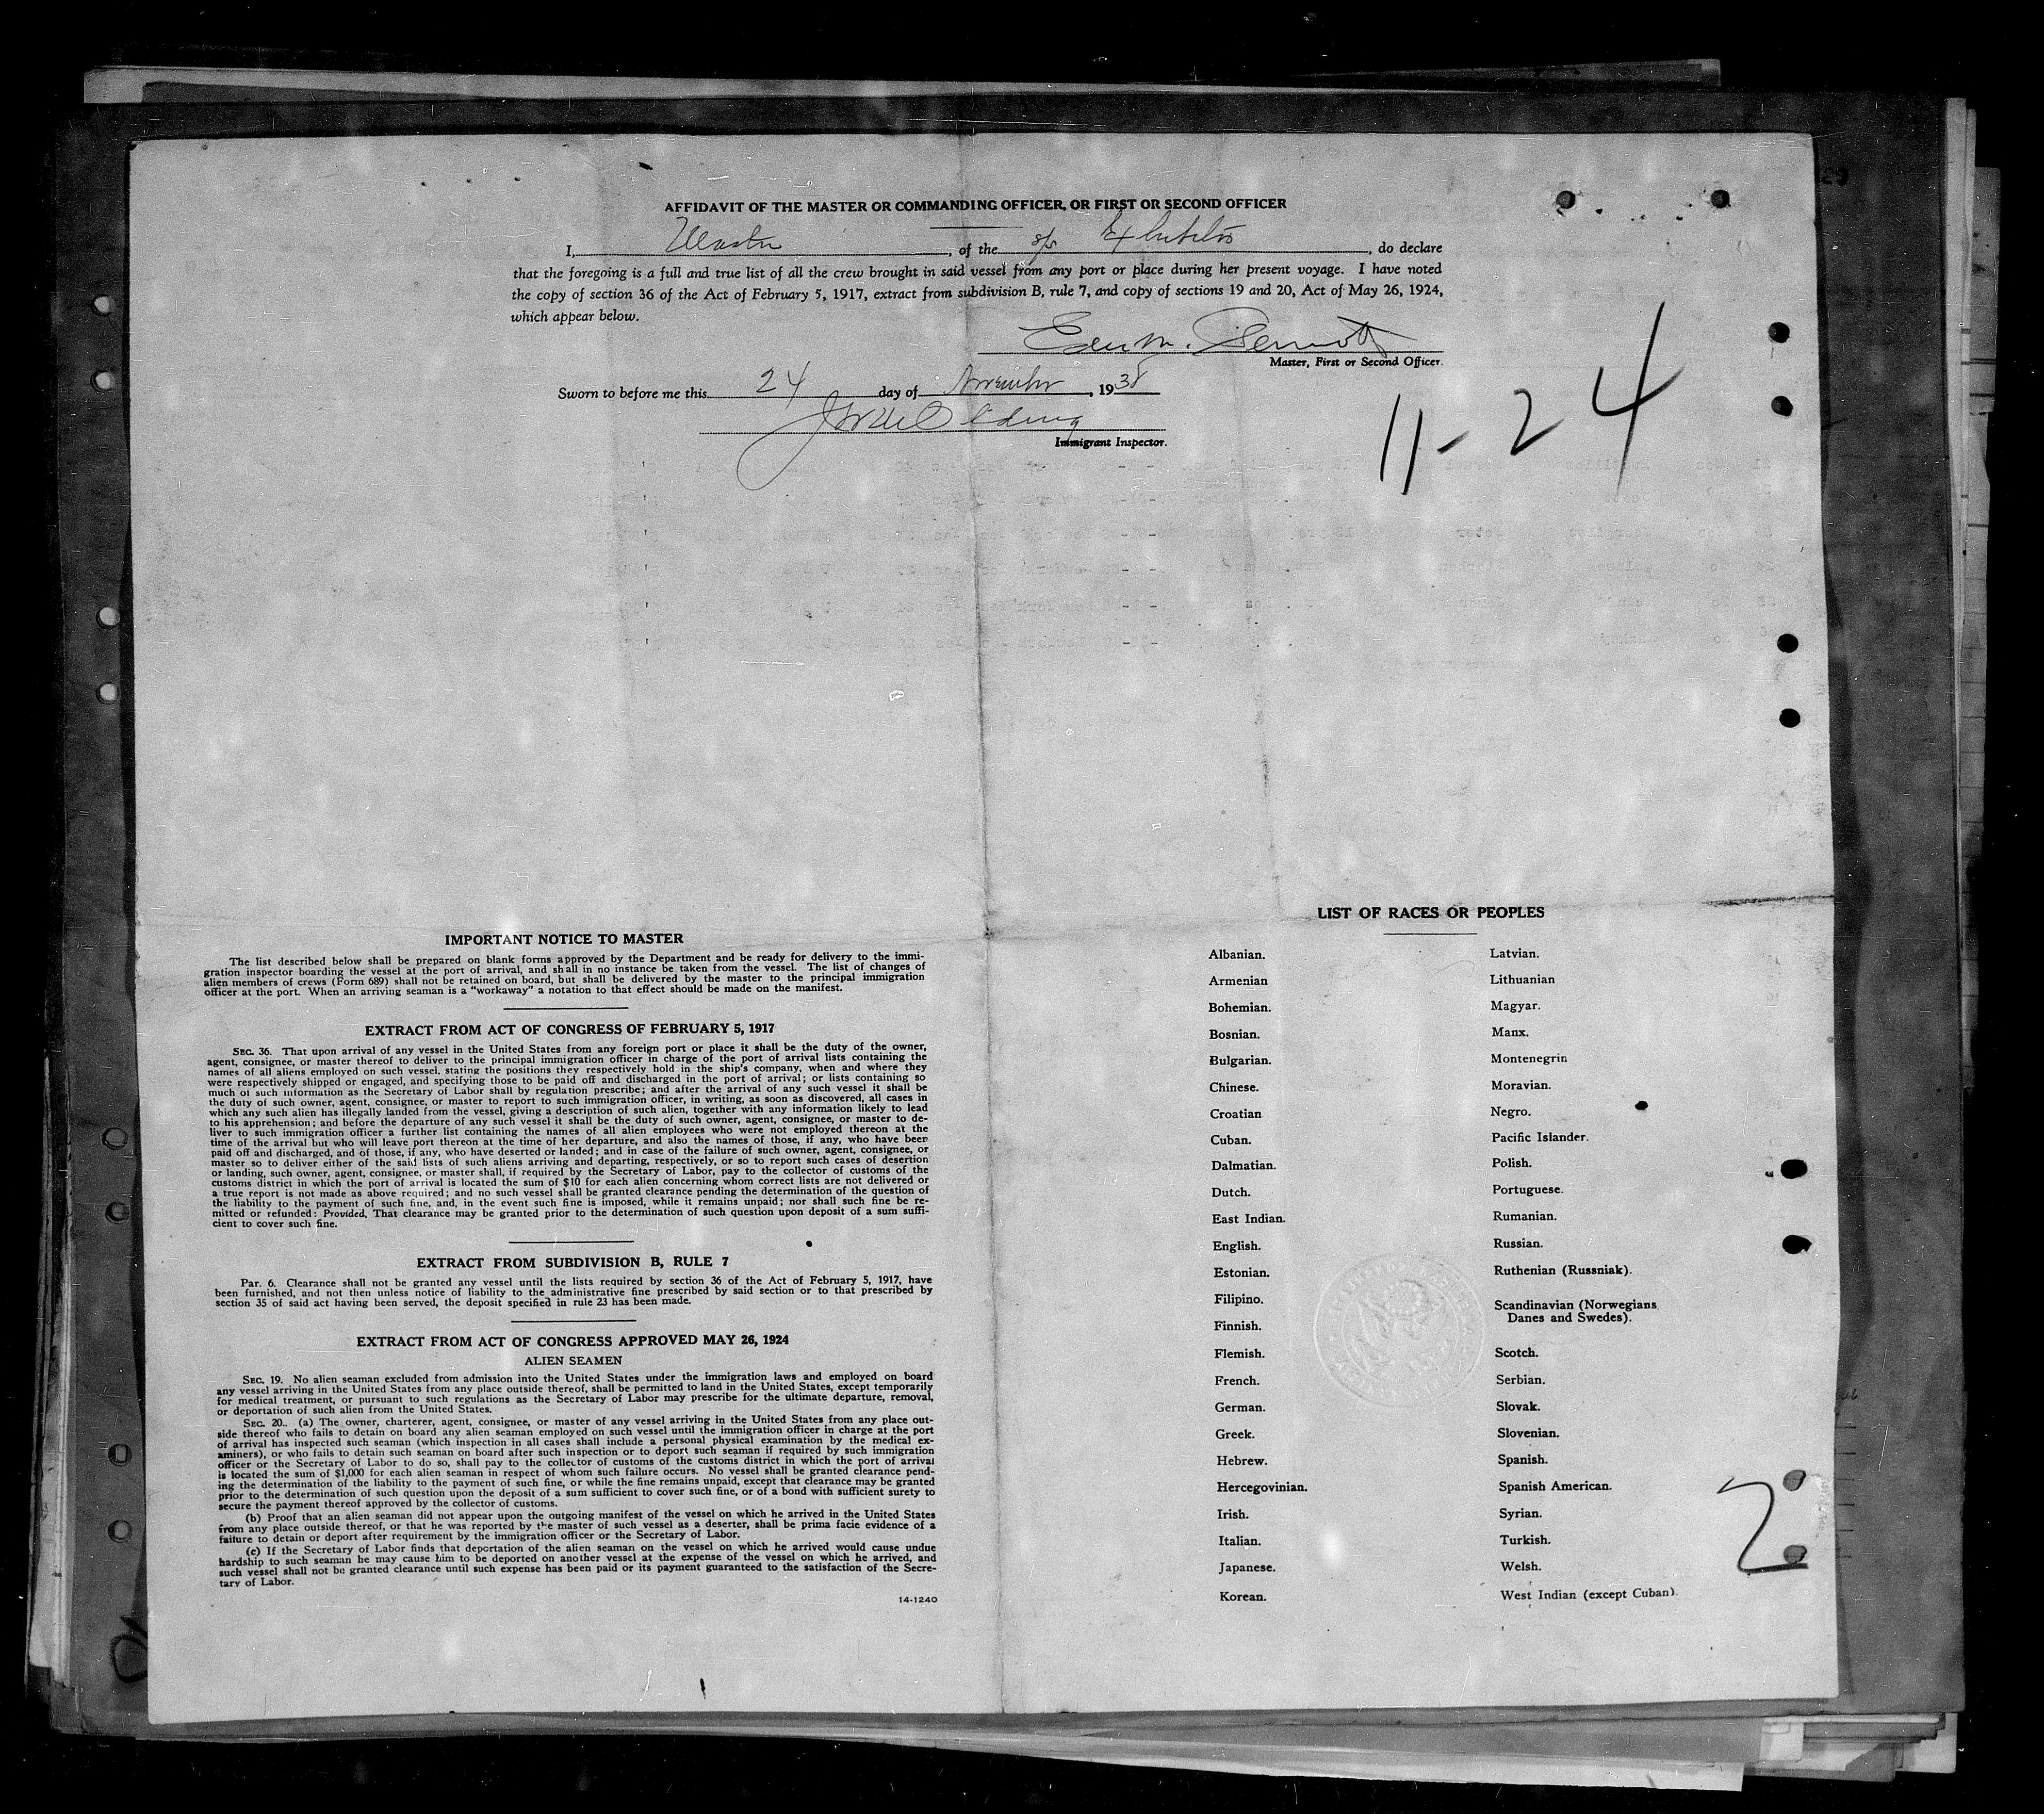 AFFIDAVIT OF THE MASTER OR COMMANDING OFFICER, OR FIRST OR SECOND OFFICER
I, Master, of the s/s, do declare
that the foregoing is a full and true list of all the crew brought in said vessel from any port or place during her present voyage. I have noted
the copy of section 36 of the Act of February 5, 1917, extract from subdivision B, rule 7, and copy of sections 19 and 20, Act of May 26, 1924,
which appear below.
Master, First or Second Officer.
Sworn to before me this 24 day of November, 1938
Immigrant Inspector.
11-24
IMPORTANT NOTICE TO MASTER
The list described below shall be prepared on blank forms approved by the Department and be ready for delivery to the immi-
gration inspector boarding the vessel at the port of arrival, and shall in no instance be taken from the vessel. The list of changes of
alien members of crews (Form 689) shall not be retained on board, but shall be delivered by the master to the principal immigration
officer at the port. When an arriving seaman is a "workaway" a notation to that effect should be made on the manifest.
EXTRACT FROM ACT OF CONGRESS OF FEBRUARY 5, 1917
SEC. 36. That upon arrival of any vessel in the United States from any foreign port or place it shall be the duty of the owner,
agent, consignee, or master thereof to deliver to the principal immigration officer in charge of the port of arrival lists containing the
names of all aliens employed on such vessel, stating the positions they respectively hold in the ship's company, when and where they
were respectively shipped or engaged, and specifying those to be paid off and discharged in the port of arrival; or lists containing so
much of such information as the Secretary of Labor shall by regulation prescribe; and after the arrival of any such vessel it shall be
the duty of such owner, agent, consignee, or master to report to such immigration officer, in writing, as soon as discovered, all cases in
which any such alien has illegally landed from the vessel, giving a description of such alien, together with any information likely to lead
to his apprehension; and before the departure of any such vessel it shall be the duty of such owner, agent, consignee, or master to de-
liver to such immigration officer a further list containing the names of all alien employees who were not employed thereon at the
time of the arrival but who will leave port thereon at the time of her departure, and also the names of those, if any, who have been
paid off and discharged, and of those, if any, who have deserted or landed; and in case of the failure of such owner, agent, consignee, or
master so to deliver either of the said lists of such aliens arriving and departing, respectively, or so to report such cases of desertion
or landing, such owner, agent, consignee, or master shall, if required by the Secretary of Labor, pay to the collector of customs of the
customs district in which the port of arrival is located the sum of $10 for each alien concerning whom correct lists are not delivered or
a true report is not made as above required; and no such vessel shall be granted clearance pending the determination of the question of
the liability to the payment of such fine, and, in the event such fine is imposed, while it remains unpaid; nor shall such fine be re-
mitted or refunded: Provided, That clearance may be granted prior to the determination of such question upon deposit of a sum suffi-
cient to cover such fine.
EXTRACT FROM SUBDIVISION B, RULE 7
Par. 6. Clearance shall not be granted any vessel until the lists required by section 36 of the Act of February 5, 1917, have
been furnished, and not then unless notice of liability to the administrative fine prescribed by said section or to that prescribed by
section 35 of said act having been served, the deposit specified in rule 23 has been made.
EXTRACT FROM ACT OF CONGRESS APPROVED MAY 26, 1924
ALIEN SEAMEN
SEC. 19. No alien seaman excluded from admission into the United States under the immigration laws and employed on board
any vessel arriving in the United States from any place outside thereof, shall be permitted to land in the United States, except temporarily
for medical treatment, or pursuant to such regulations as the Secretary of Labor may prescribe for the ultimate departure, removal,
or deportation of such alien from the United States.
SEC. 20.. (a) The owner, charterer, agent, consignee, or master of any vessel arriving in the United States from any place out-
side thereof who fails to detain on board any alien seaman employed on such vessel until the immigration officer in charge at the port
of arrival has inspected such seaman (which inspection in all cases shall include a personal physical examination by the medical ex-
aminers), or who fails to detain such seaman on board after such inspection or to deport such seaman if required by such immigration
officer or the Secretary of Labor to do so, shall pay to the collector of customs of the customs district in which the port of arrival
is located the sum of $1,000 for each alien seaman in respect of whom such failure occurs. No vessel shall be granted clearance pend-
ing the determination of the liability to the payment of such fine, or while the fine remains unpaid, except that clearance may be granted
prior to the determination of such question upon the deposit of a sum sufficient to cover such fine, or of a bond with sufficient surety to
secure the payment thereof approved by the collector of customs.
(b) Proof that an alien seaman did not appear upon the outgoing manifest of the vessel on which he arrived in the United States
from any place outside thereof, or that he was reported by the master of such vessel as a deserter, shall be prima facie evidence of a
failure to detain or deport after requirement by the immigration officer or the Secretary of Labor.
(c) If the Secretary of Labor finds that deportation of the alien seaman on the vessel on which he arrived would cause undue
hardship to such seaman he may cause him to be deported on another vessel at the expense of the vessel on which he arrived, and
such vessel shall not be granted clearance until such expense has been paid or its payment guaranteed to the satisfaction of the Secre-
tary of Labor.
14-1240
LIST OF RACES OR PEOPLES
Albanian.
Armenian
Bohemian.
Bosnian.
Bulgarian.
Chinese.
Croatian
Cuban.
Dalmatian.
Dutch.
East Indian.
English.
Estonian.
Filipino.
Finnish.
Flemish.
French.
German.
Greek.
Hebrew.
Hercegovinian.
Irish.
Italian.
Japanese.
Korean.
Latvian.
Lithuanian
Magyar.
Manx.
Montenegrin
Moravian.
Negro.
Pacific Islander.
Polish.
Portuguese.
Rumanian.
Russian.
Ruthenian (Russniak).
Scandinavian (Norwegians
Danes and Swedes).
Scotch.
Serbian.
Slovak.
Slovenian.
Spanish.
Spanish American.
Syrian.
Turkish.
Welsh.
West Indian (except Cuban).
2